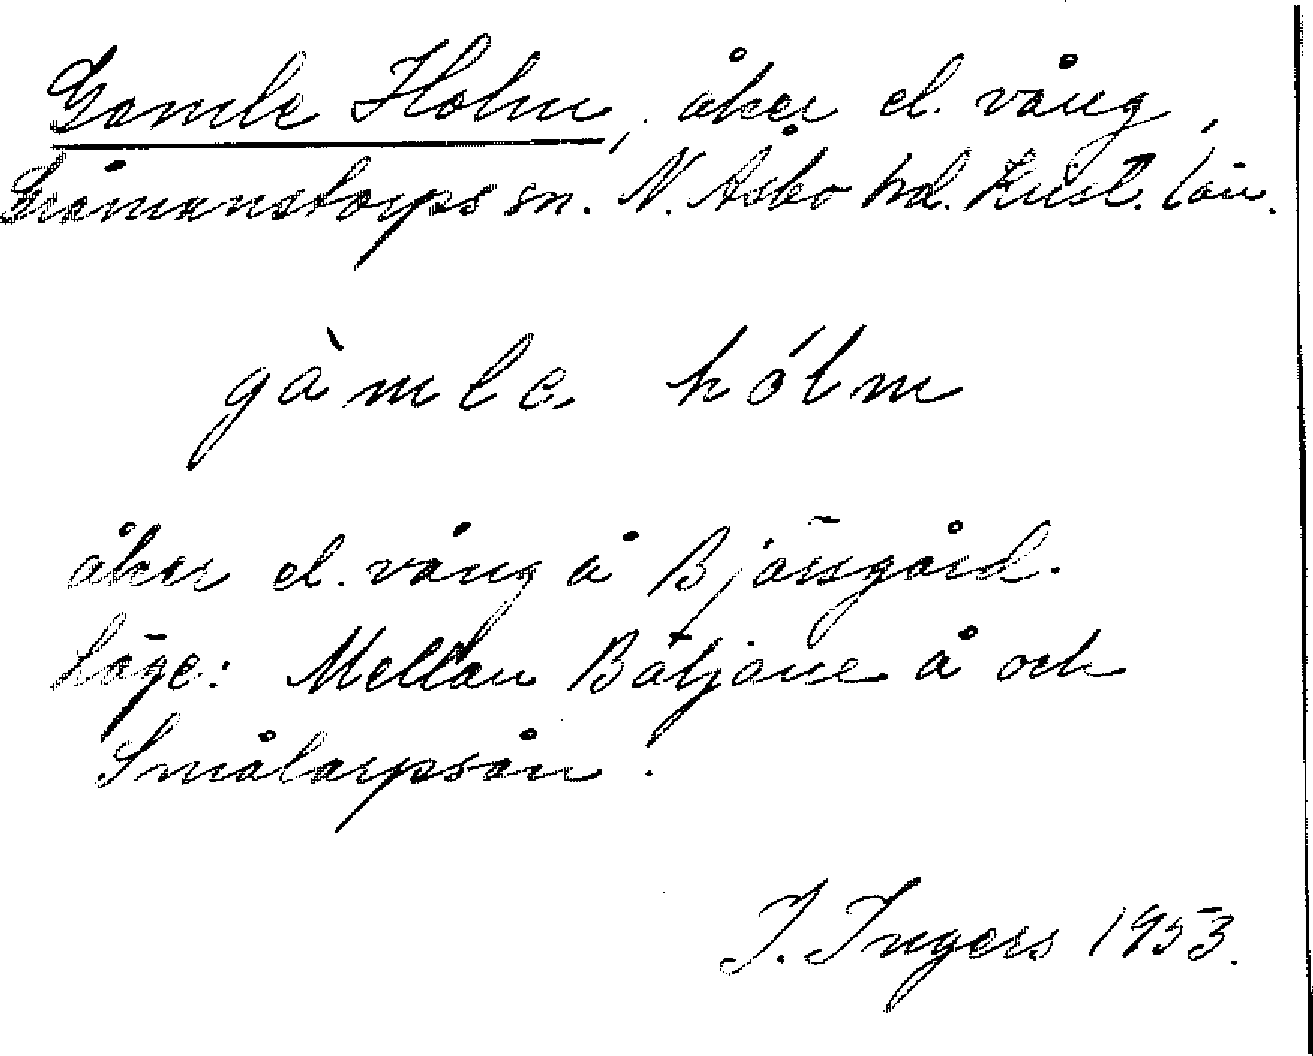 Gamle Holm, åker el. vång,
Gråmanstorps sn. N. Åsbo hd. Krist. län.
gàmlе hólm
åker el. vång å Bjärsgård.
Läge: Mellan Bäljane å och
Smålarpsån.
I. Ingers 1953.